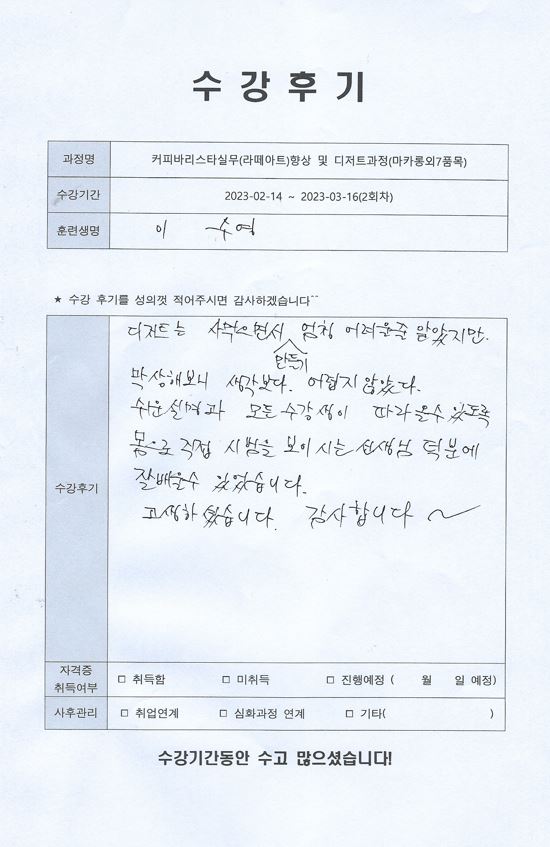 수 강 후 기
과정명 커피바리스타실무(라떼아트)향상 및 디저트과정(마카롱외7품목)
수강기간 2023-02-14 ~ 2023-03-16(2회차)
훈련생명 이 수영
★ 수강 후기를 성의껏 적어주시면 감사하겠습니다^^
수강후기
디저트는 사먹으면서 엄청 어려운줄 알았지만.
만들기
막상해보니 생각보다. 어렵지 않았다.
쉬운설명과 모든수강생이 따라올수 있도록
몸으로 직접 시범을 보이시는 선생님 덕분에
잘배울수 있었습니다.
고생하셨습니다. 감사합니다 ~
자격증
취득여부 □ 취득함 □ 미취득 □ 진행예정 ( 월 일 예정)
사후관리 □ 취업연계 □ 심화과정 연계 □ 기타( )
수강기간동안 수고 많으셨습니다!